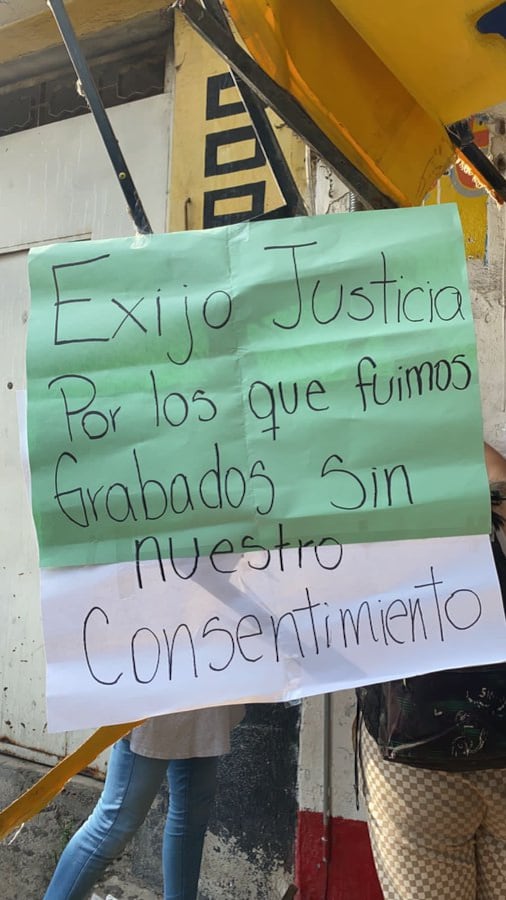 Exijo Justicia
Por los que fuimos
Grabados Sin
nuestro
Consentimiento